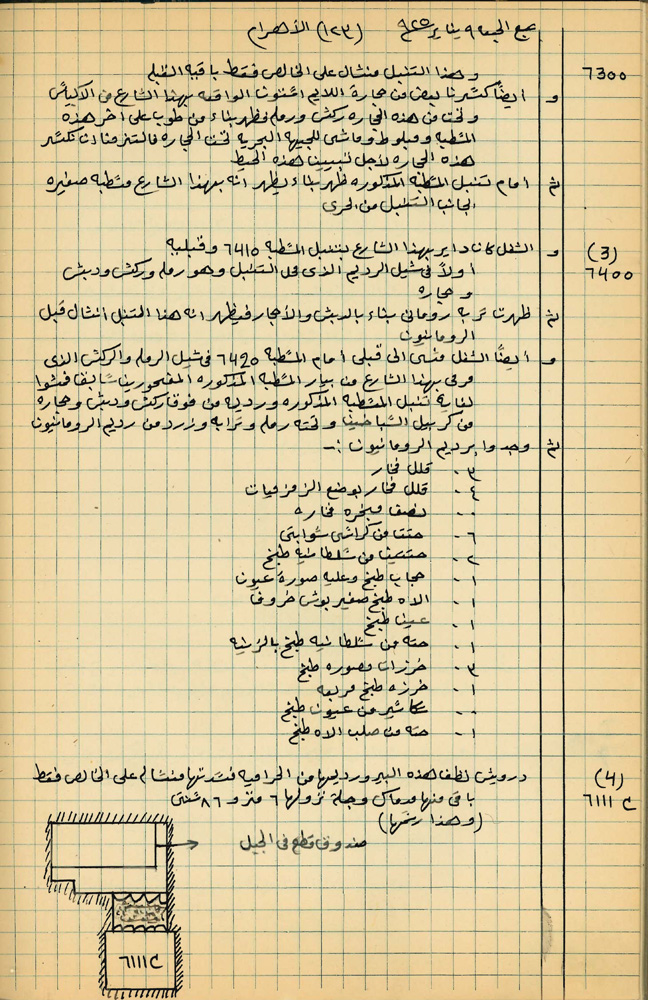 صبح الجمعه ٩ يناير ٩٢٥ (١٢٣) الأهرام
7300
وهذا التنبل منشال على الخالص فقط باقيه القبله
و أيضاً كسّرنا بعض من حجارة اللايم الواقعه بهذا الشارع من
وتحت من هذه الحجاره ركش ورمله فظهر بناء من طوب على آخر هذه
المسّطبه و وماشى للجيهه البحريه تحت الحجاره فالتزمنا نكسّر
هذه الحجاره لأجل تبيين هذه الحيط
ثم أمام تنبل المسّطبه المذكوره ظهر بناء يظهر انه بهذا الشارع مسّطبه صغيره
لجانب التنبل من بحرى
(3)
7400
و الشغل كان داير بهذا الشارع بتنبل المسّطبه 7410 وقبليه
أولاً فى شيل الرديم الذى فى التنبل وهو رمله وركش ودبش
و حجاره
ثم ظهرت تربه رومانى بناء بالدبش والأحجار فيظهر انه هذا التنبل انشال قبل
الرومانيون
و أيضاً الشغل مشى الى قبلى أمام المسّطبه 7420 فى شيل الرمله والركش الذى
مرمى بهذا الشارع من بيار المسّطبه المذكوره المفحورين سابقا فمشوا
لغاية تنبل المسّطبه المذكوره ورديمه من فوق ركش ودبش وحجاره
من كربيل السباخين وتحته رمله وترابه من رديم الرومانيون
ثم وجدوا برديم الرومانيون :-
٣ . قلل فخار
٤ . قلل فخار بوضع الزمزميات
. . نصف مبخره فخاره
٦ . حتت من كراسى شوابتى
٢ . حتتين من سلطانيه طبخ
١ . حجاب طبخ وعليه صورة عيون
١ . الاه طبخ صغير بوش خروف
١ . عين طبخ
١ . حته من سلطانيه طبخ بالزينه
٣ . خرزات مصوره طبخ
١ . خرزه طبخ مربعه
. . كاشير من عيون طبخ
١ . حته من صلب الاه طبخ
(4)
7111 C
درويش نظف هذه البير ورديمها من الحراميه فسدتها منشاله على الخالص فقط
باقى منها مدماك وجملة نزولها ٦ متر و ٨٦ سنتى
(وهذا رسمها)
صندوق قطع فى الجبل
7111 C